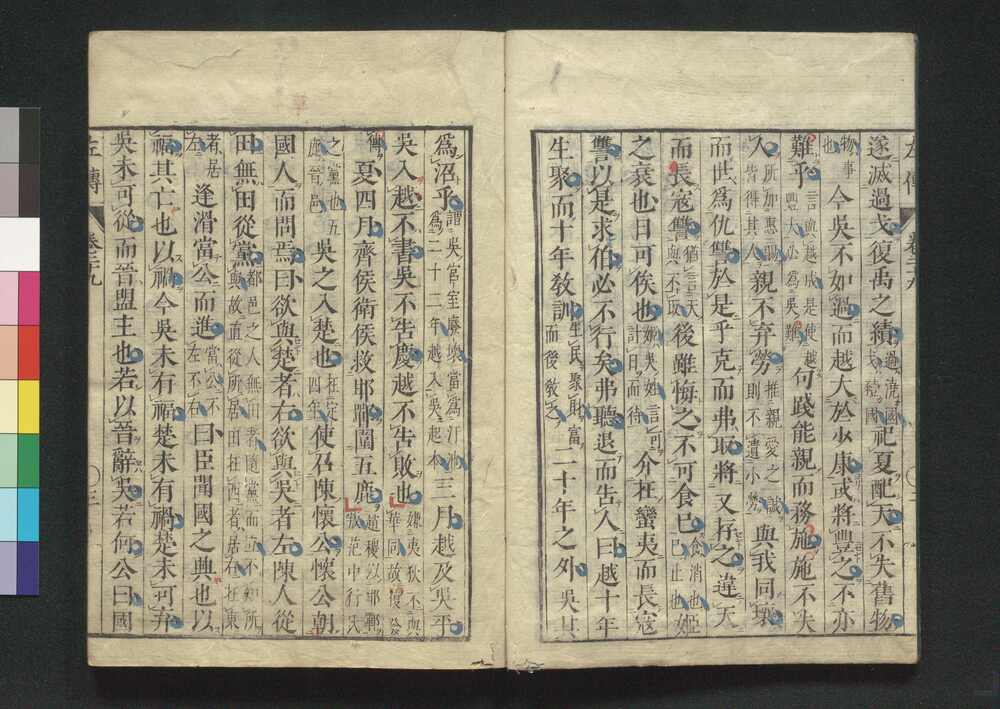 遂滅過戈復禹之績過澆國戈豷國祀夏配天不失舊物
物事也今吳不如過而越大於少康或將豐之不亦
難乎言與越成是使越豐大必為吳難句踐能親而務施施不失
人所加惠賜皆得其人親不弃勞推親愛之誠則不遺小勞與我同壤
而世為仇讐於是乎克而弗取將又存之違天
而長寇讐猶言天與不取後雖悔之不可食已食消也已止也姬
之衰也日可俟也姬吳姓言可計日而待介在蠻夷而長寇
讐以是求伯必不行矣弗聽退而告人曰越十年
生聚而十年敎訓生民聚財富而後敎之二十年之外吳其
左傳 卷二十九
為沼乎謂吳宮室廢壞當為汙池為二十二年越入吳起本三月越及吳平
吳入越不書吳不告慶越不告敗也嫌夷狄不與華同故復發
傳夏四月齊侯衛侯救邯鄲圍五鹿趙稷以邯鄲叛范中行氏
之黨也五鹿晉邑吳之入楚也在定四年使召陳懷公懷公朝
國人而問焉曰欲與楚者右欲與吳者左陳人從
田無田從黨都邑之人無田者隨黨而立不知所與故直從所居田在西者居右在東
者居左逢滑當公而進當公不左不右曰臣聞國之興也以
福其亡也以禍今吳未有福楚未有禍楚未可弃
吳未可從而晉盟主也若以晉辭吳若何公曰國
左傳 卷二十九